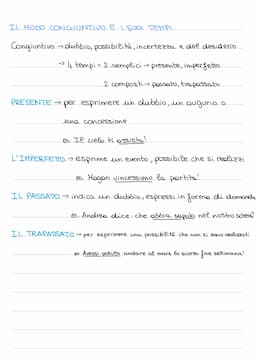 IL MODO CONGIUNTIVO E I SUOI TEMPI
Congiuntivo → dubbio, possibilità, incertezza e del desiderio
→ 4 tempi = 2 semplici → presente, imperfetto
2 composti → passato, trapassato
PRESENTE → per esprimere un dubbio, un augurio o
una concessione
es Il cielo ti assista!
L'IMPERFETTO → esprime un evento, possibile che si realizzi
es. Magari vincessimo la partita!
IL PASSATO → indica un dubbio, espressi in forma di domanda
es. Andrea dice: che abbia saputo nel nostro
IL TRAPASSATO → per esprimere una possibilità che non si sono realizzati
es Avessi potuto andare al mare lo scorso fine settimana!